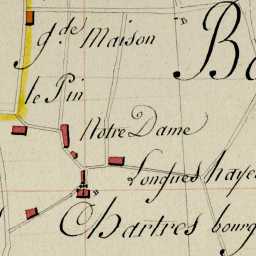 gde Maison
le Pin
Notre Dame
Longues hayes
Chartres bourg